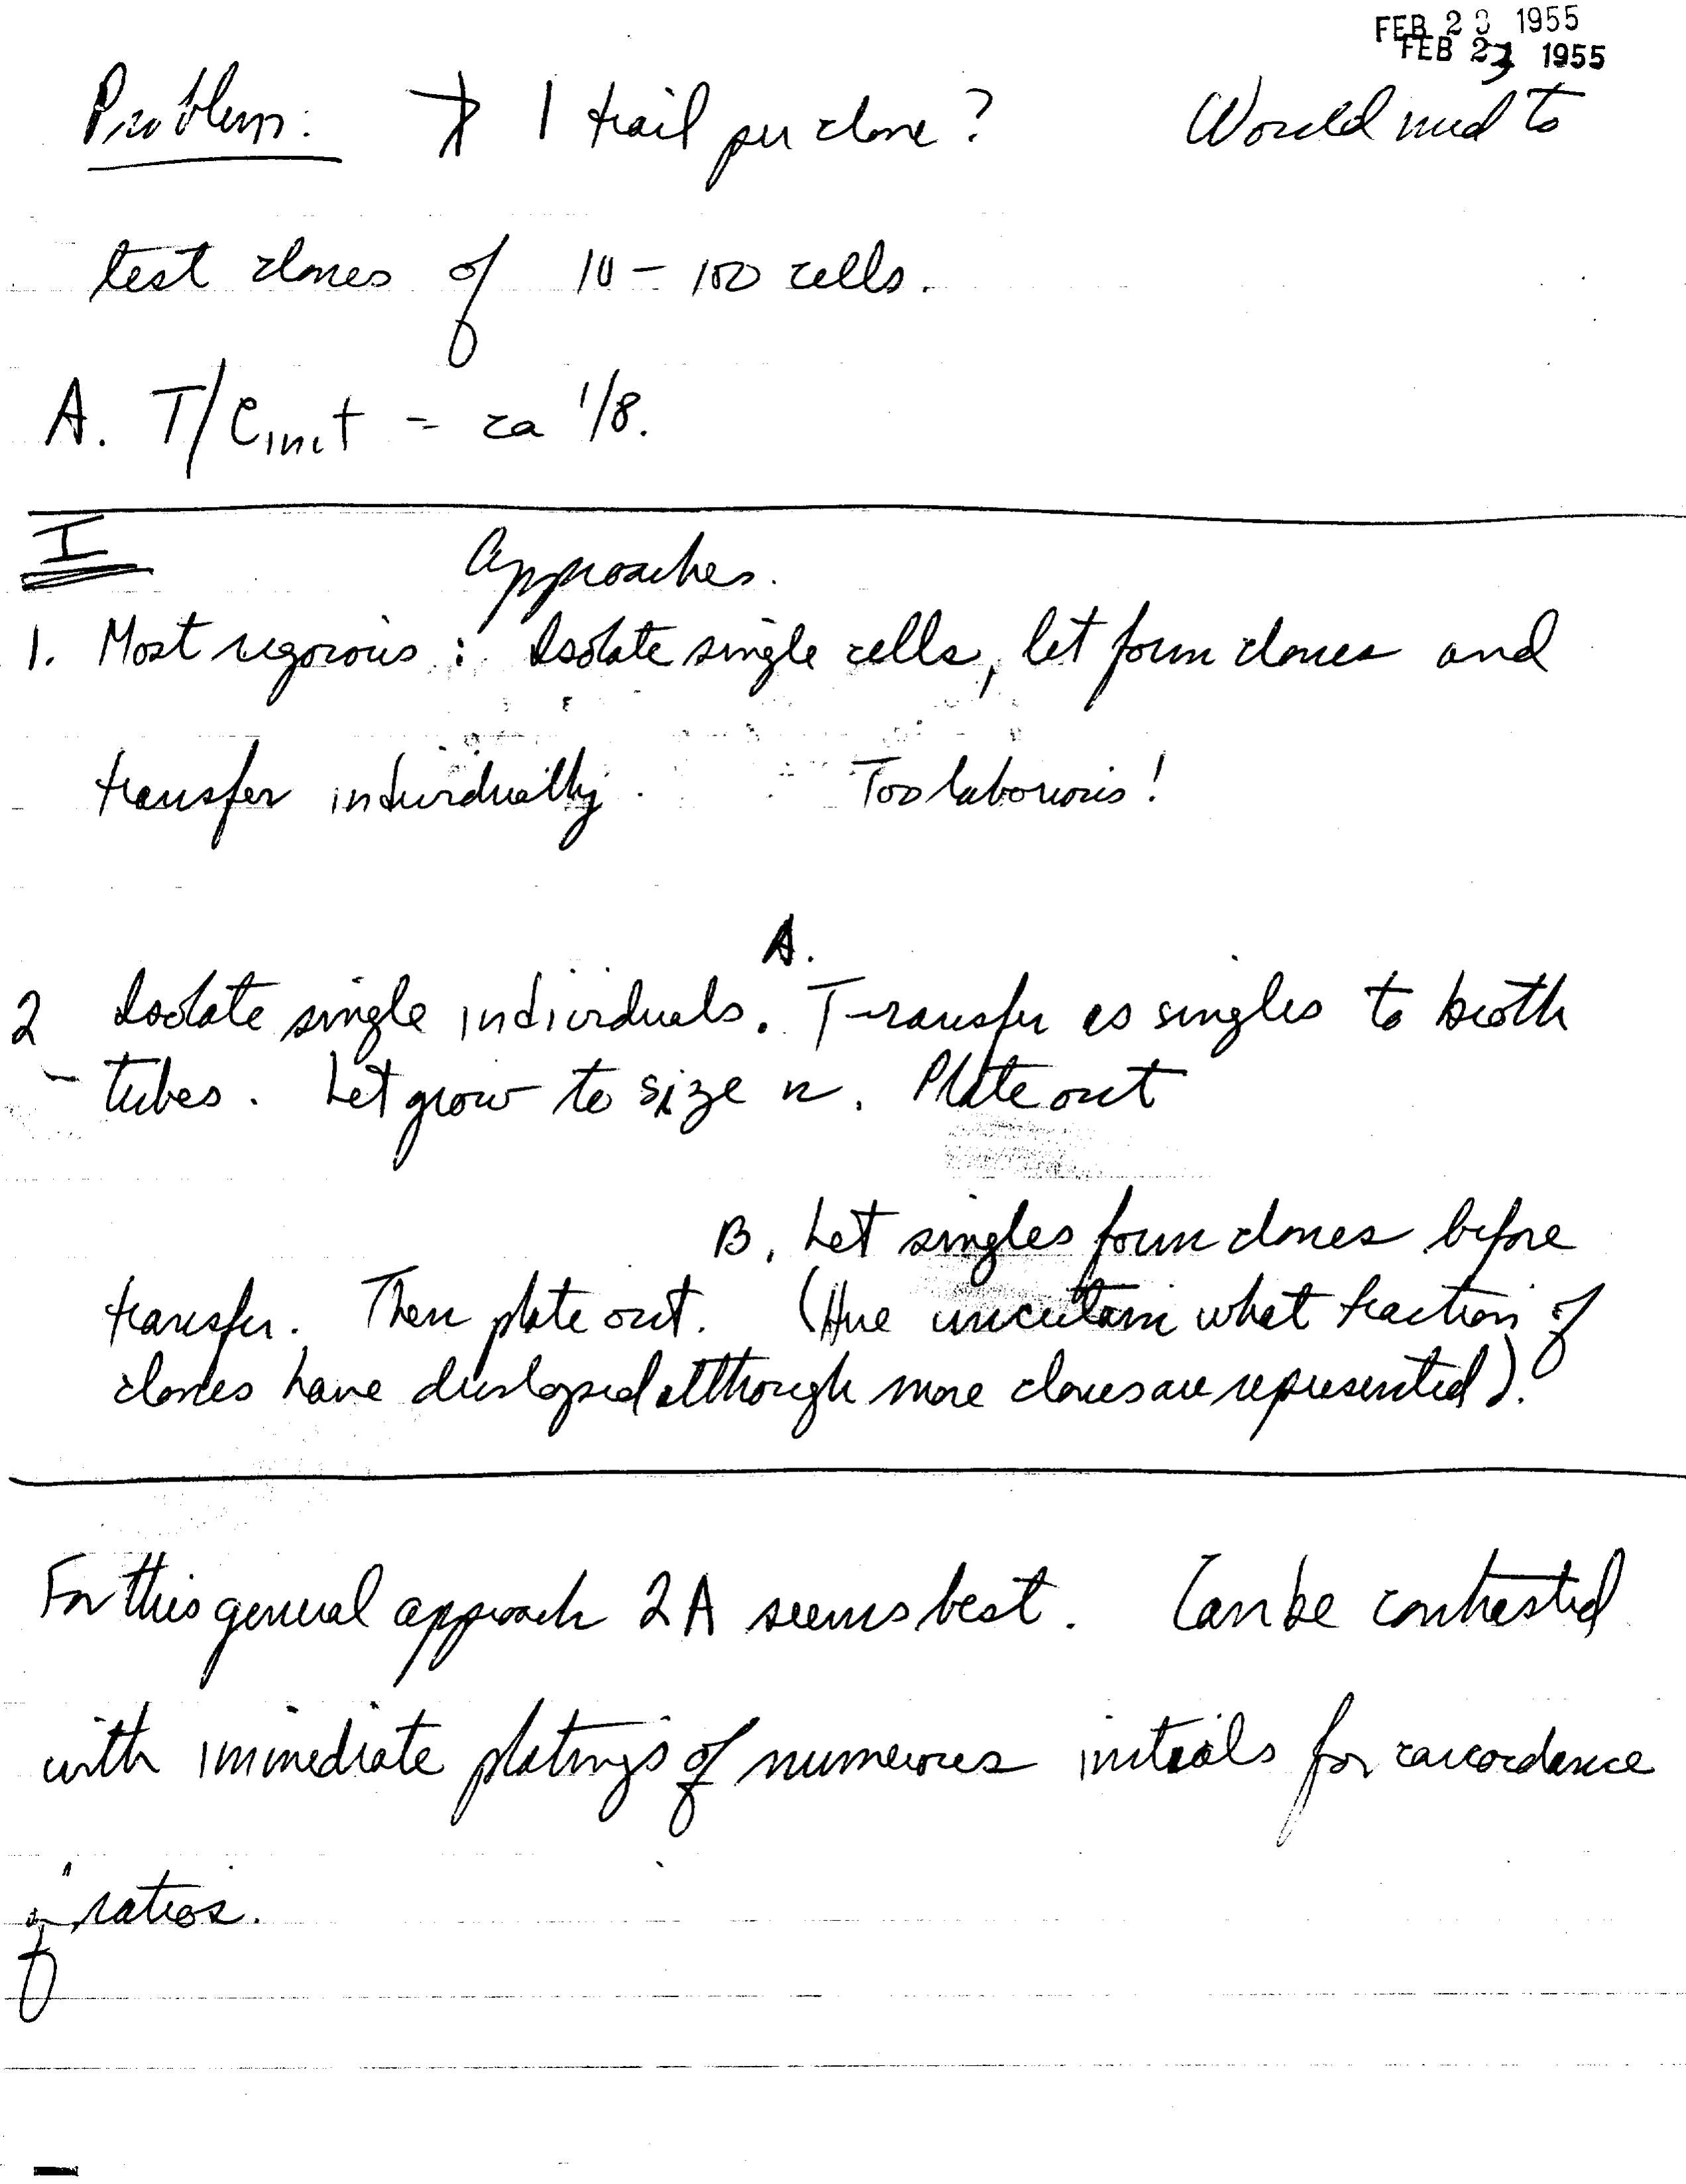 FEB 23 1955
FEB 23 1955
Problem: ≯ 1 trail per clone? Would need to
test clones of 10 – 100 cells.
A. T/Cinit = ca 1/8.
I
Approaches.
1. Most rigorous: Isolate single cells, let form clones and
transfer individually. Too laborious!
A.
2 Isolate single individuals. Transfer as singles to broth
tubes. Let grow to size n. Plate out
B. Let singles form clones before
transfer. Then plate out. (Here uncertain what fraction of
clones have developed although more clones are represented).
For this general approach 2A seems best. Can be contrasted
with immediate platings of numerous initials for concordance
of ratios.